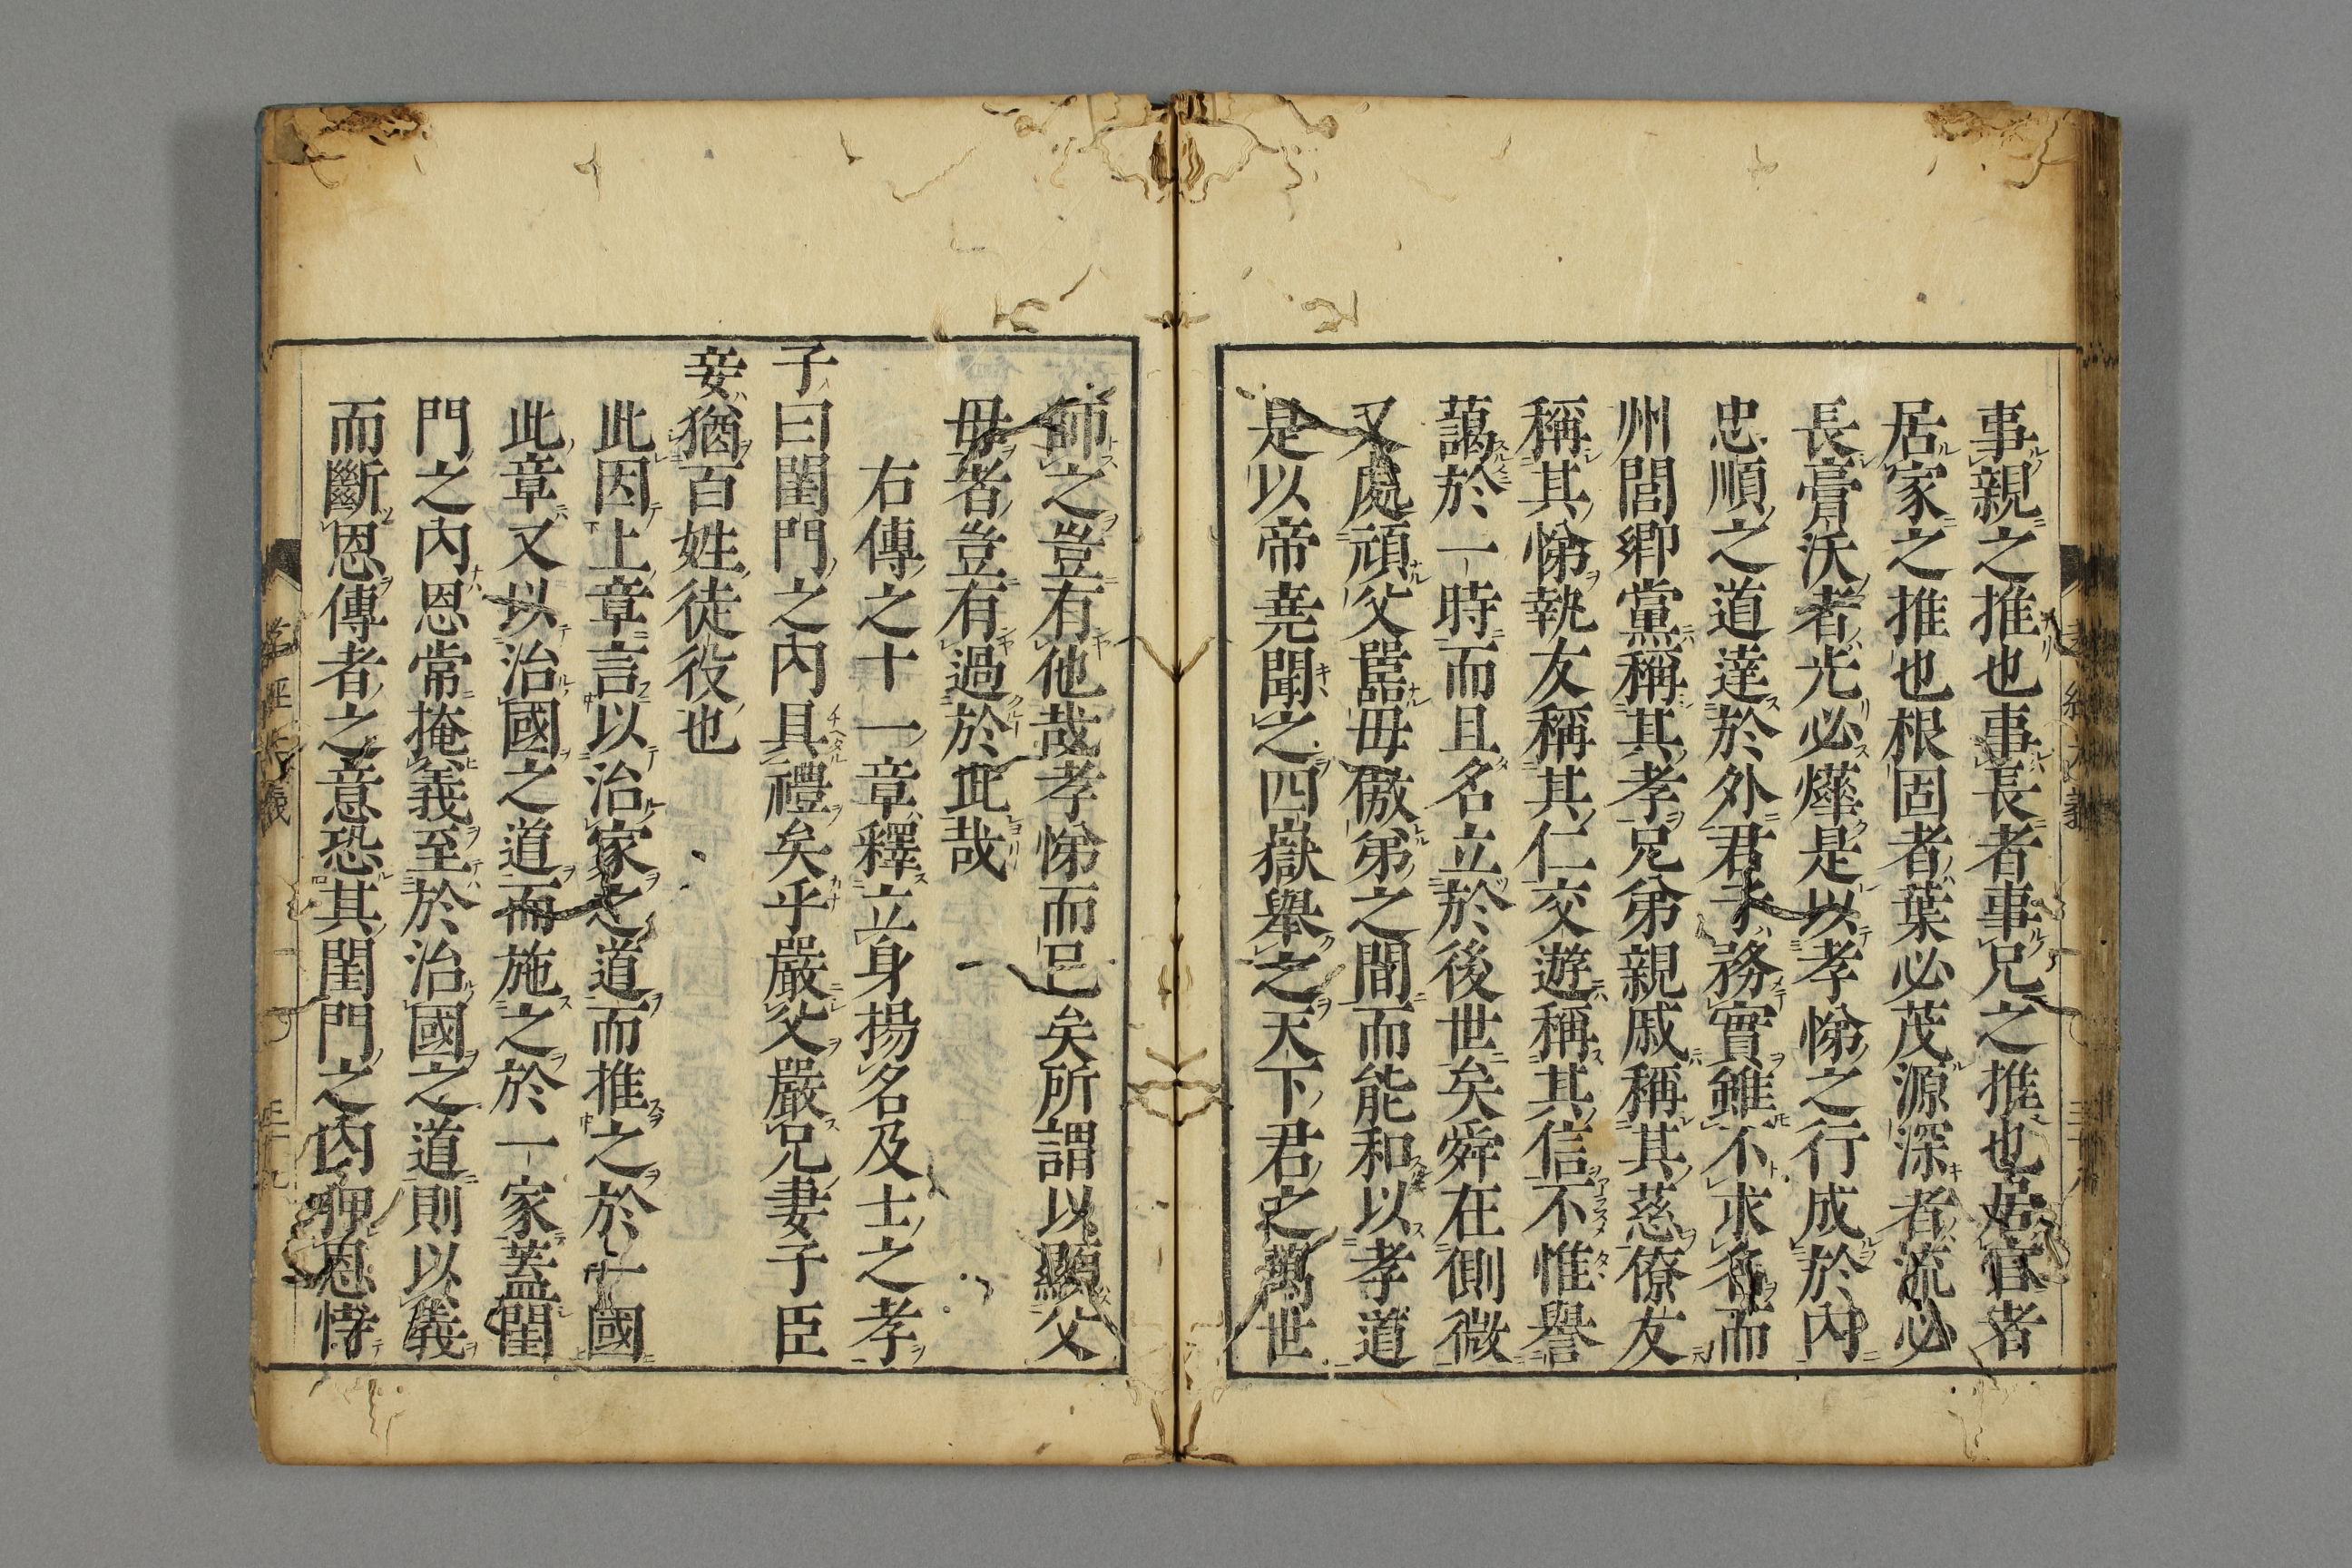 事親之推也事長者事兄之推也居官者
居家之推也根固者葉必茂源深者流必
長膏沃者光必燁是以孝悌之行成於內
忠順之道達於外君子務實雖不求名而
州閭鄉黨稱其孝兄弟親戚稱其慈僚友
稱其悌執友稱其仁交遊稱其信不惟譽
藹於一時而且名立於後世矣舜在側微
又處頑父嚚母傲弟之間而能和以孝道
是以帝堯聞之四嶽舉之天下君之萬世
師之豈有他哉孝悌而已矣所謂以顯父
母者豈有過於此哉
右傳之十一章釋立身揚名及士之孝
子曰閨門之內具禮矣乎嚴父嚴兄妻子臣
妾猶百姓徒役也
此因上章言以治家之道而推之於一國
此章又以治國之道而施之於一家蓋閨
門之內恩常掩義至於治國之道則以義
而斷恩傳者之意恐其閨門之內狎恩恃